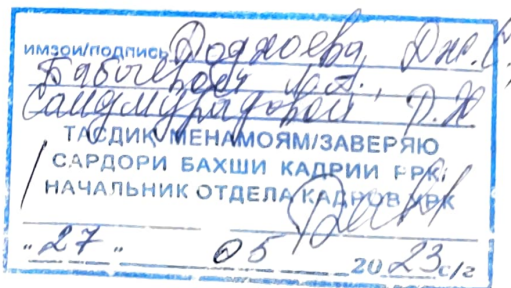 имзои/подпись Доджоева Дж.С.
Бабычевой Л.А.,
Саидмурадовой Р.Ж
ТАСДИҚ МЕНАМОЯМ/ЗАВЕРЯЮ
САРДОРИ БАХШИ КАДРИИ
НАЧАЛЬНИК ОТДЕЛА КАДРОВ
"27" 05 2023 с/г